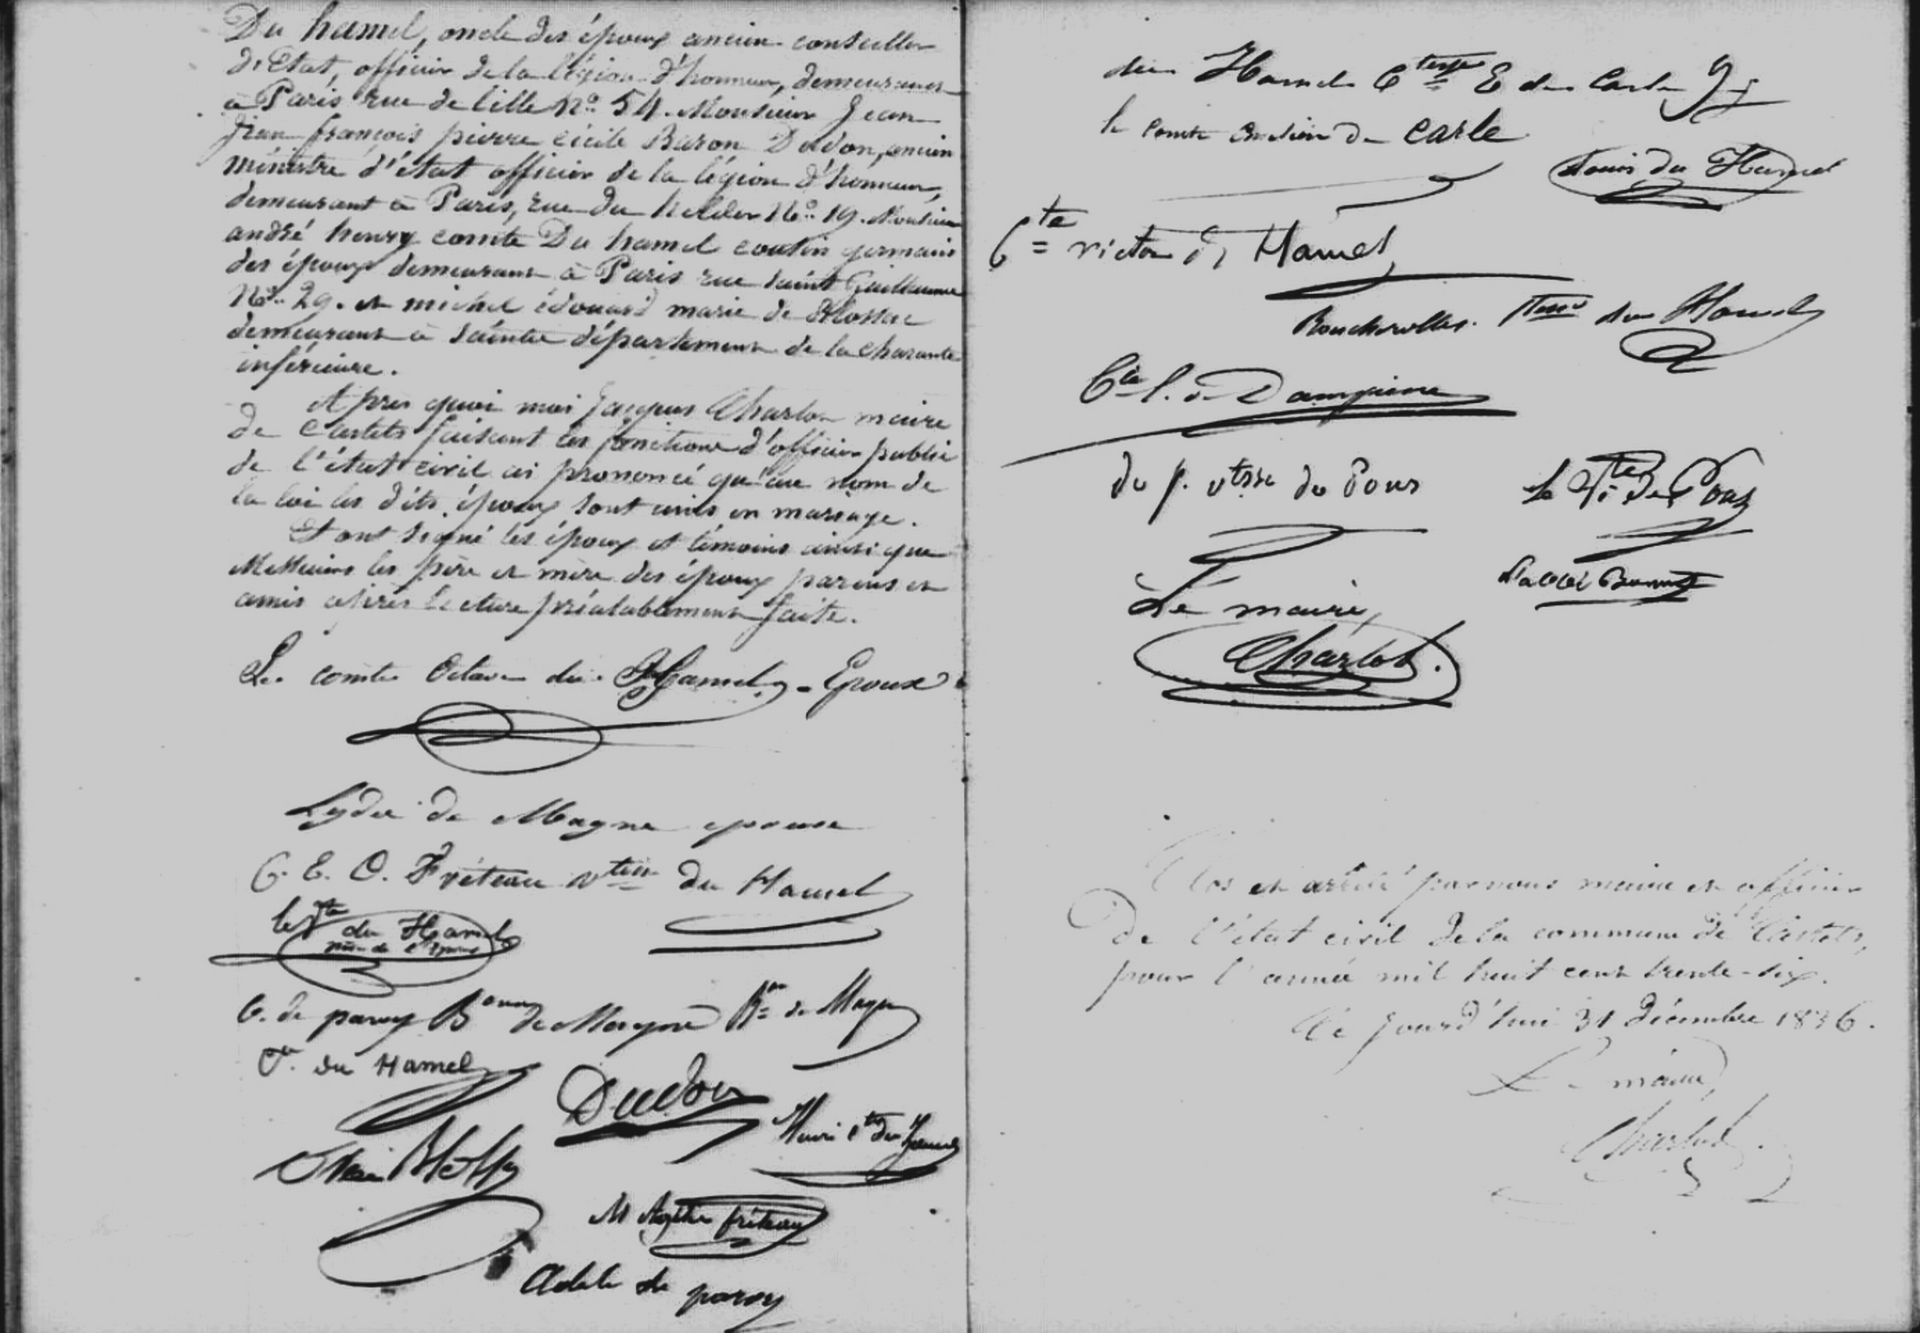 Du hamel, oncle des époux ancien conseiller
d'Etat, officier de la légion d'honneur, demeurant
à Paris rue de Lille No. 54. Monsieur Jean
Jean françois pierre cécile Baron Dudon, ancien
ministre d'état officier de la légion d'honneur,
demeurant à Paris, rue du helder No. 19. Monsieur
andré henry comte Du hamel cousin germain
des époux demeurant à Paris rue saint Guillaume
No. 29. et michel édouard marie de
demeurant à Sainte département de la charante
inférieure.
Après quoi moi Jacques Charlot maire
de Castets faisant les fonctions d'officier public
de l'état civil ai prononcé qu'au nom de
la loi les dits époux sont unis en mariage.
Et ont signé les époux et témoins ainsi que
Messieurs les père et mère des époux parens et
amis après lecture préalablement faite.
Le comte Octave du Hamel, Epoux
Lydie de Magne epouse
C. E. O. Fréteau vtesse du Hamel
le Vte du Hamel
père de l'époux
C. de paroy Bonne de Magne Bon de Magne
Cte du Hamel
Dudon
Henri Cte du Hamel
M Agathe fréteau
Adele de paroy
du Hamel Ctesse E de Carle
le comte de Carle
Louis du Hamel
Cte victor du Hamel
Roncherolles. Ctesse du Hamel
Cte L. de Dampierre
du p. vtsse de Pons
le Vte de Pons
Le maire,
L'abbé
Charlot.
Clos et arrêté par nous maire et officier
De l'état civil de la commune de Castets,
pour l'année mil huit cent trente-six.
Ce jourd'hui 31 Décembre 1836.
Le maire,
Charlot.